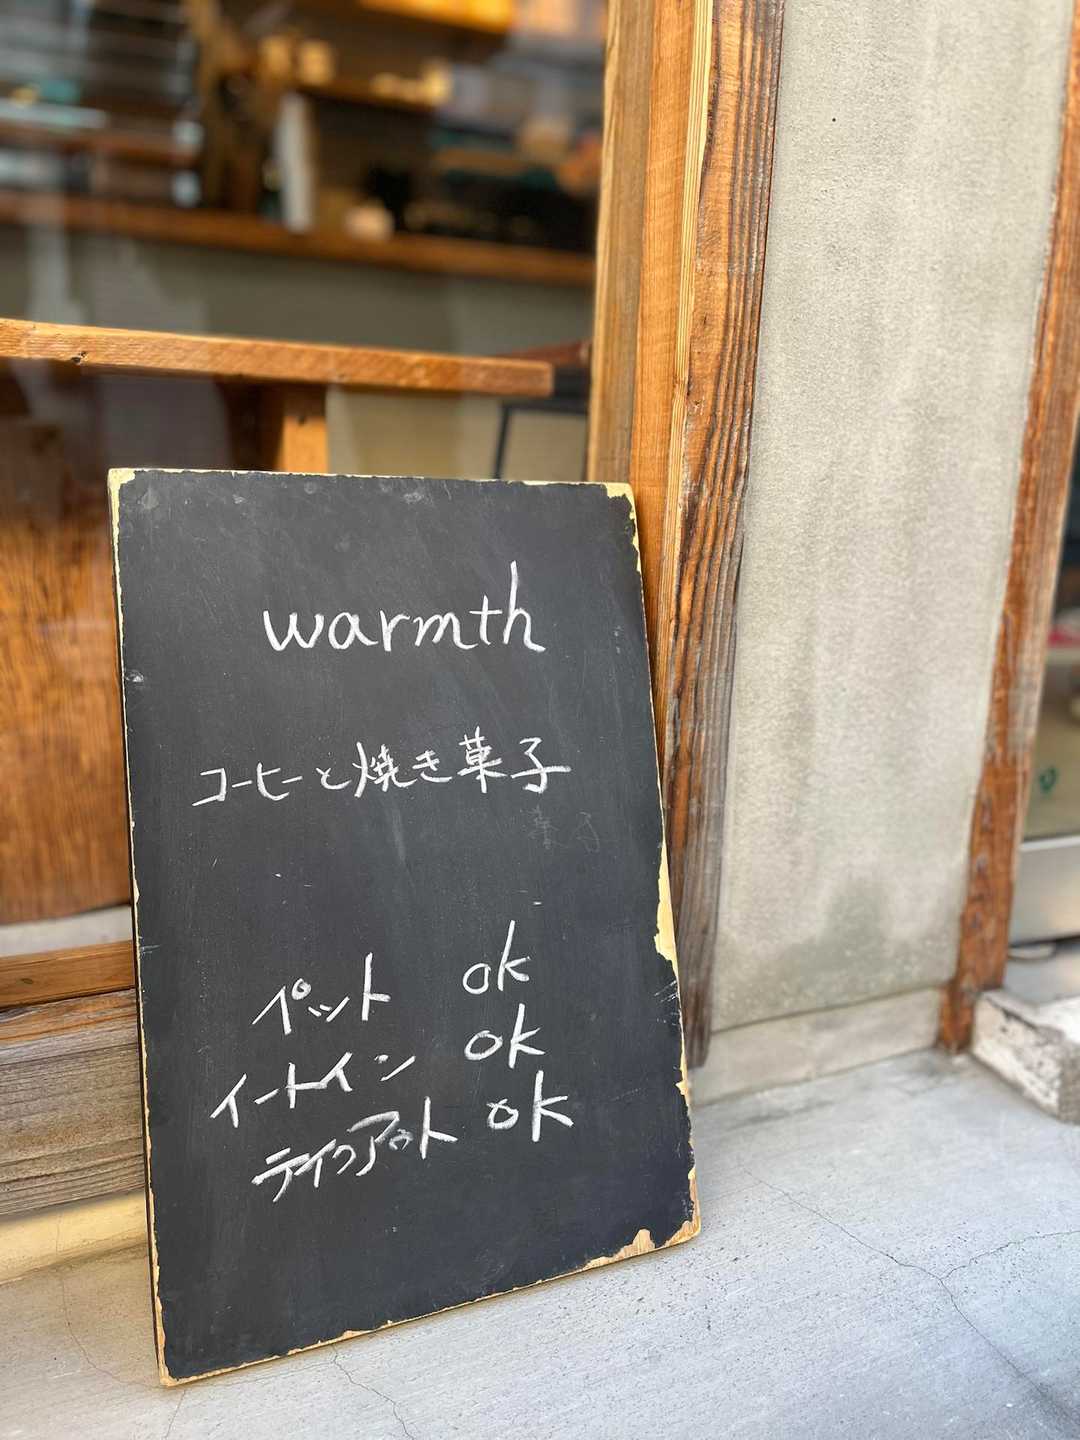 warmth
コーヒーと焼き菓子
菓子
ペット ok
イートイン ok
テイクアウト ok